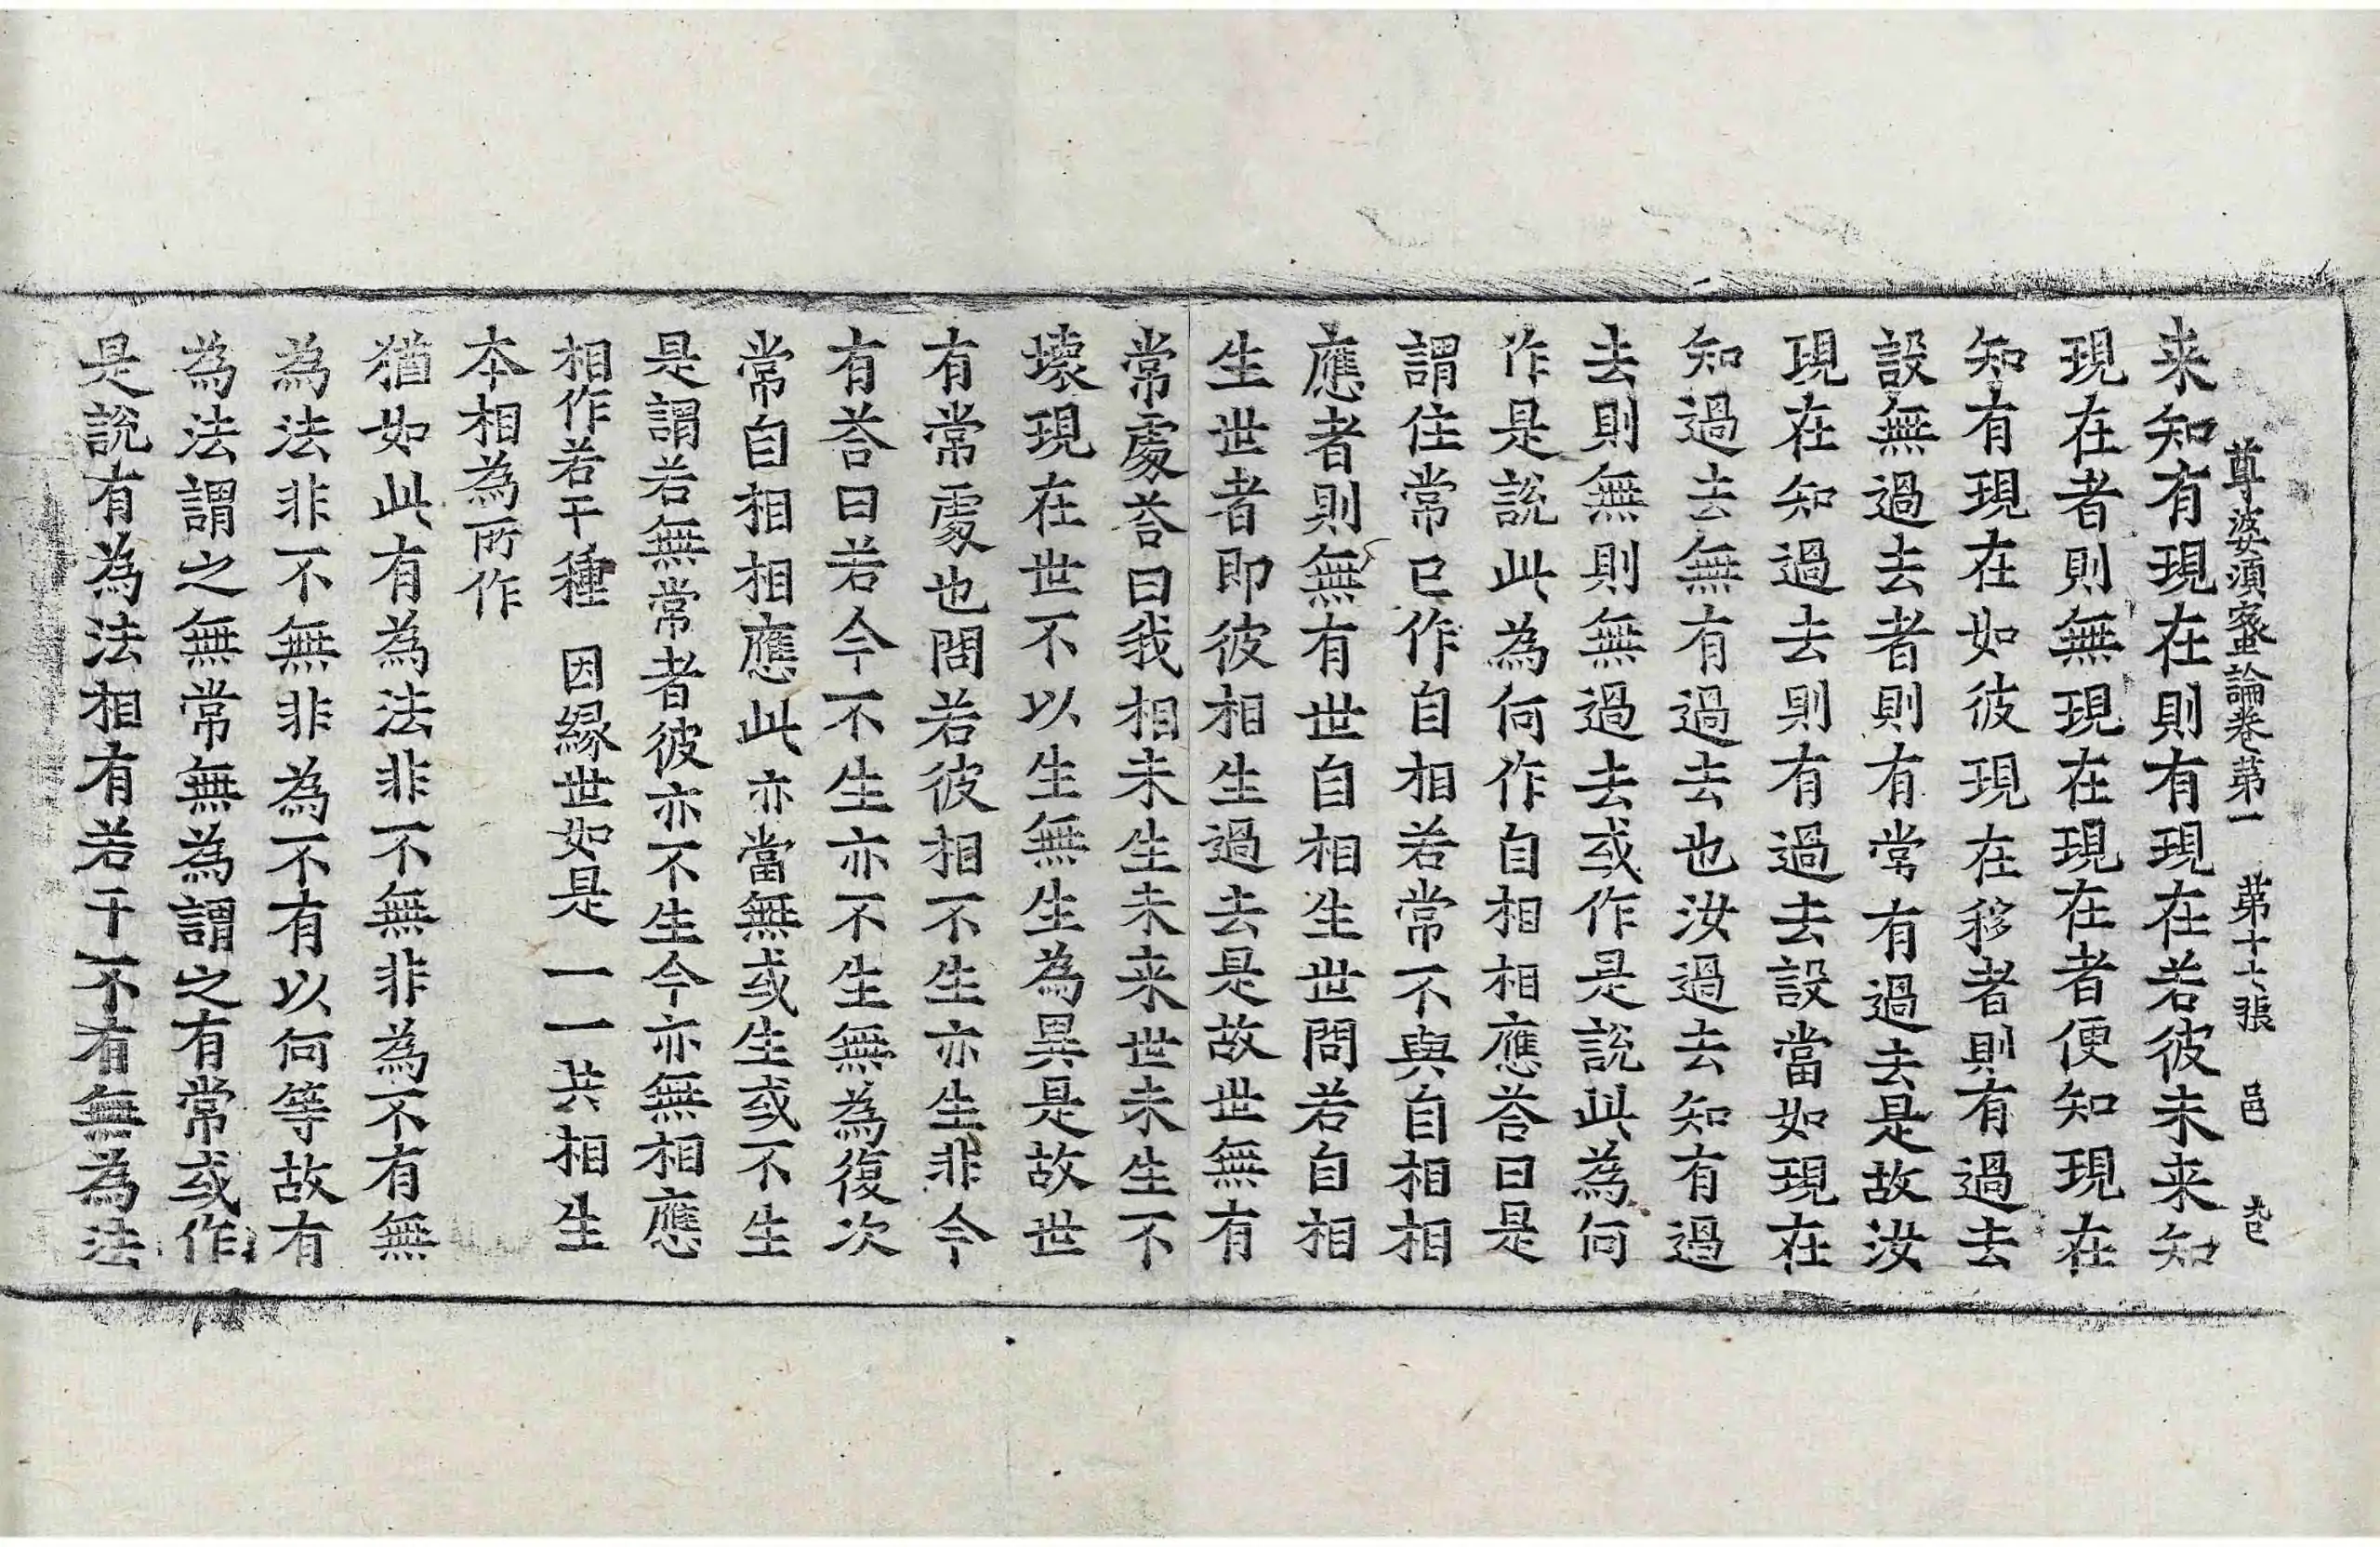 尊婆須蜜論卷第一　第十七張　邑
来知有現在則有現在若彼未来知
現在者則無現在現在者便知現在
知有現在如彼現在移者則有過去
設無過去者則有常有過去是故汝
現在知過去則有過去設當如現在
知過去無有過去也汝過去知有過
去則無則無過去或作是說此為何
作是說此為何作自相相應荅曰是
謂住常已作自相若常不與自相相
應者則無有世自相生世問若自相
生世者即彼相生過去是故世無有
常處荅曰我相未生未来世未生不
壞現在世不以生無生為異是故世
有常處也問若彼相不生亦生非今
有荅曰若今不生亦不生無為復次
常自相相應此亦當無或生或不生
是謂若無常者彼亦不生今亦無相應
相作若干種　因緣世如是　一一共相生
本相為所作
猶如此有為法非不無非為不有無
為法非不無非為不有以何等故有
為法謂之無常無為謂之有常或作
是說有為法相有若干不有無為法